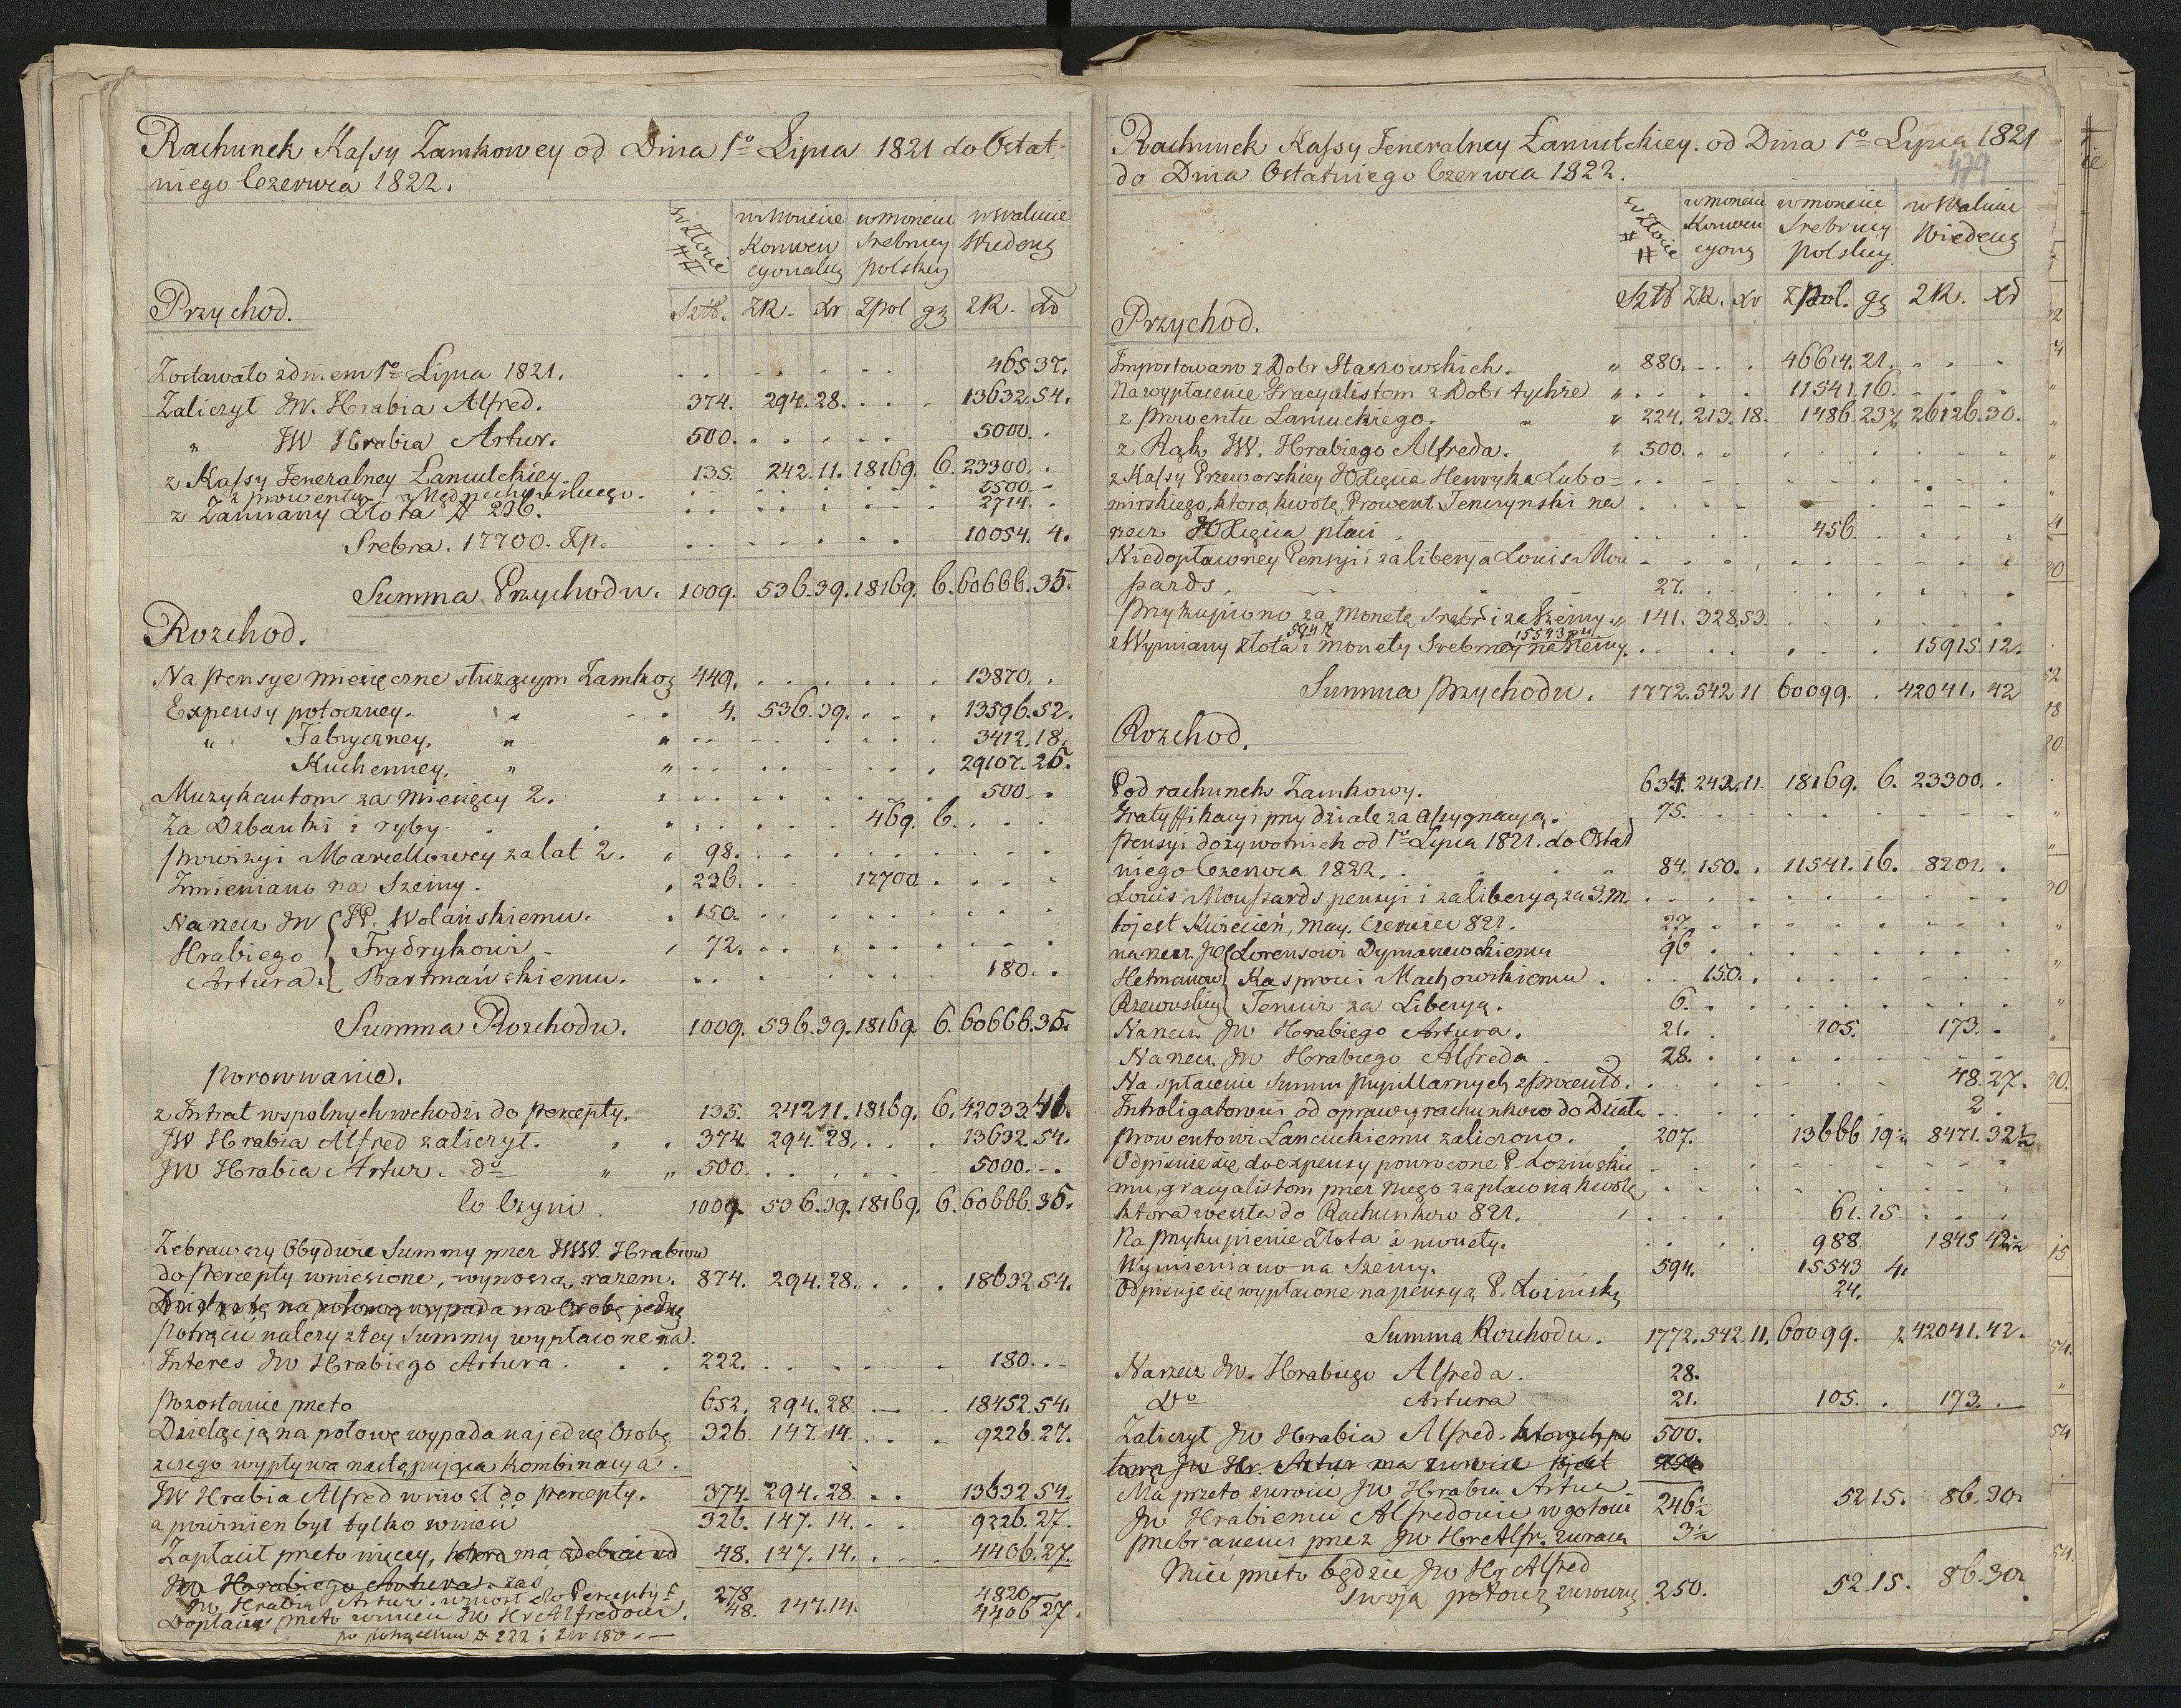 Rachunek Kassy Zamkowey od Dnia 1º Lipca 1821 do Ostat
niego Czerwca 1822.
w Złocie ##
w Monecie Konwen cyonalney
w monecie Srebrney polskiey
w walucie Wiedeń
Przychod.
Sztk. ZR. Xr Zpol gr ZR. Xr
Zostawało z dniem 1º Lipca 1821. 465 37.
Zaliczył JW. Hrabia Alfred. 374. 294. 28. 13632. 54.
" JW Hrabia Artur. 500. 5000.
z Kassy Jeneralney Łancutckiey 135. 242. 11. 18169. 6. 23300.
z prowentu 5500.
z Zamiany Złota # 236. 2714.
Srebra. 17700. Zp. 10054. 4.
Summa Przychodu. 1009. 536. 39. 18169. 6. 60666. 35.
Rozchod.
Na pensye miesięczne służącym Zamkog 449. 13870.
Expensy potoczney. 4. 536. 39. 13596. 52.
" Fabryczney. " 3412. 18.
Kuchenney. " 29107. 25.
Muzykantom za Miesięcy 2. 500
Za Dzbanki i ryby. 469. 6.
prowizyi Marcellowey za lat 2. " 98.
Zmieniano na Szeiny. 236. 17700
Na rzecz JW { JP. Wolańskiemu. 150.
Hrabiego { Frydrykowi 72.
Artura. { Bartmańskiemu. 180.
Summa Rozchodu. 1009. 536. 39. 18169. 6. 60666. 35.
Porownanie.
z Intrat wspolnych wchodzi do percepty. 135. 242 11. 18169. 6. 42033. 41.
JW Hrabia Alfred zaliczył. 374 294. 28. 13632. 54.
JW Hrabia Artur. dº 500. 5000.
Co Czyni 1009. 536. 39. 18169. 6. 60666. 35.
Zebrawszy Obydwie Summy przez JWW. Hrabiow
do percepty wniesione, wynoszą razem. 874. 294. 28. 18632. 54.
Dzieląc ią na połowę wypada na Osobę jednę
Potrącić należy z tey Summy wypłacone na.
Interes JW Hrabiego Artura. 222. 180.
pozostanie przeto 652. 294. 28 18452. 54.
Dzieląc ją na połowę wypada na jednę Osobę 326. 147. 14. 9226. 27.
z czego wypływa następująca Kombinacya.
JW Hrabia Alfred wniosł do percepty. 374. 294. 28. 13632 54.
a powinien był tylko wnieść 326. 147. 14. 9226. 27.
Zapłacił przeto więcey, ktora ma odebrać od 48. 147. 14. 4406. 27.
JW Hrabiego Artura. zas
JW Hrabia Artur. wniosł do Percepty 278 4820
Dopłacić przeto winien JW Hr Alfredowi. 48. 147. 14. 4406 27.
po potrąceniu # 222 i ZR 180
Rachunek Kassy Jeneralney Łancutckiey. od Dnia 1º Lipca 1821
479
do Dnia Ostatniego Czerwca 1822.
w Złocie ##
w moneci Konwen cyong
w monecie Srebrney polskiey
w Waluci Wiedeng
Sztk ZR. Xr Zpol. gr ZR. Xr
Przychod.
Importowano z Dobr Staszowskich. " 880. 46614. 21.
Na wypłacenie Gracyalistom z Dobr tychże " 11541. 16.
z prowentu Łancuckiego. " 224. 213. 18. 1486. 23 26126. 30.
z Rąk JW. Hrabiego Alfreda. " 500.
z Kassy Przeworskiey JO Xięcia Henryka Lubo-
mirskiego, ktorą kwotę Prowent Tenczynski na
rzecz JO Xięcia płaci 456
Niedopłaconey Pensyi i za liberją Louis Mou
pards. 27.
Przykupiono za Monetę Srebr i za Szeiny " 141. 328 53.
594 # 15543
z Wymiany złota i monety Srebrney na Szeiny. 15915. 12.
Summa przychodu. 1772. 542 11 60099. 42041. 42
Rozchod.
Pod rachunek Zamkowy. 634. 242. 11. 18169. 6. 23300.
Gratyffikacyi przy dziale za assygnacyą. 75.
pensyi dożywotnich od 1º Lipca 1821. do Ostat
niego Czerwca 1822. 84. 150. 11541. 16. 8201.
Louis Moussards pensyi i za liberyą za 3. m.
to jest Kwiecień, May. Czerwiec 821. 27.
na rzecz JW { Lorensowi Dymaszewskiemu 96
Hetmanow { Kasprowi Machowskiemu. 150.
Rzewuskiey { Tenuir za Liberyą. 6.
Na rzecz JW Hrabiego Artura. 21. 105. 173.
Na rzecz JW Hrabiego Alfreda 28.
Na spłacenie Summ pupillarnych z prowentd. 48. 27.
Introligatorowi od oprawy rachunkow do Działu 2.
Prowentowi Łancuckiemu zaliczono. 207. 13666 19 8471. 32½
Odpisuie się do expensy powrocone P. Łozińskie
mu, gracyalistom przez niego zapłaconą kwotę,
ktora weszła do Rachunkow 821. 61. 15.
Na przykupienie Złota i monety. 988. 1845 42½
Wymieniano na Szeiny. 594. 15543 4.
Odpisuje się wypłacone na pensyą P. Łozinsky 24.
Summa Rozchodu. 1772. 542. 11. 60099. 42041. 42.
Na rzecz JW. Hrabiego Alfreda. 28.
Dº Artura 21. 105. 173.
Zaliczył JW Hrabia Alfred. ktorych po 500.
łowę JW Hr. Artur ma zwrocic to jest
Ma przeto zwrocic JW Hrabia Artur
JW Hrabiemu Alfredowi w gotowi 246½ 52 15. 86. 30.
przebranemi przez JW Hr Alfr. zwraca 3½
Mieć przeto będzie JW Hr Alfred
Swoją połowę zwroconą 250. 52. 15. 86. 30.